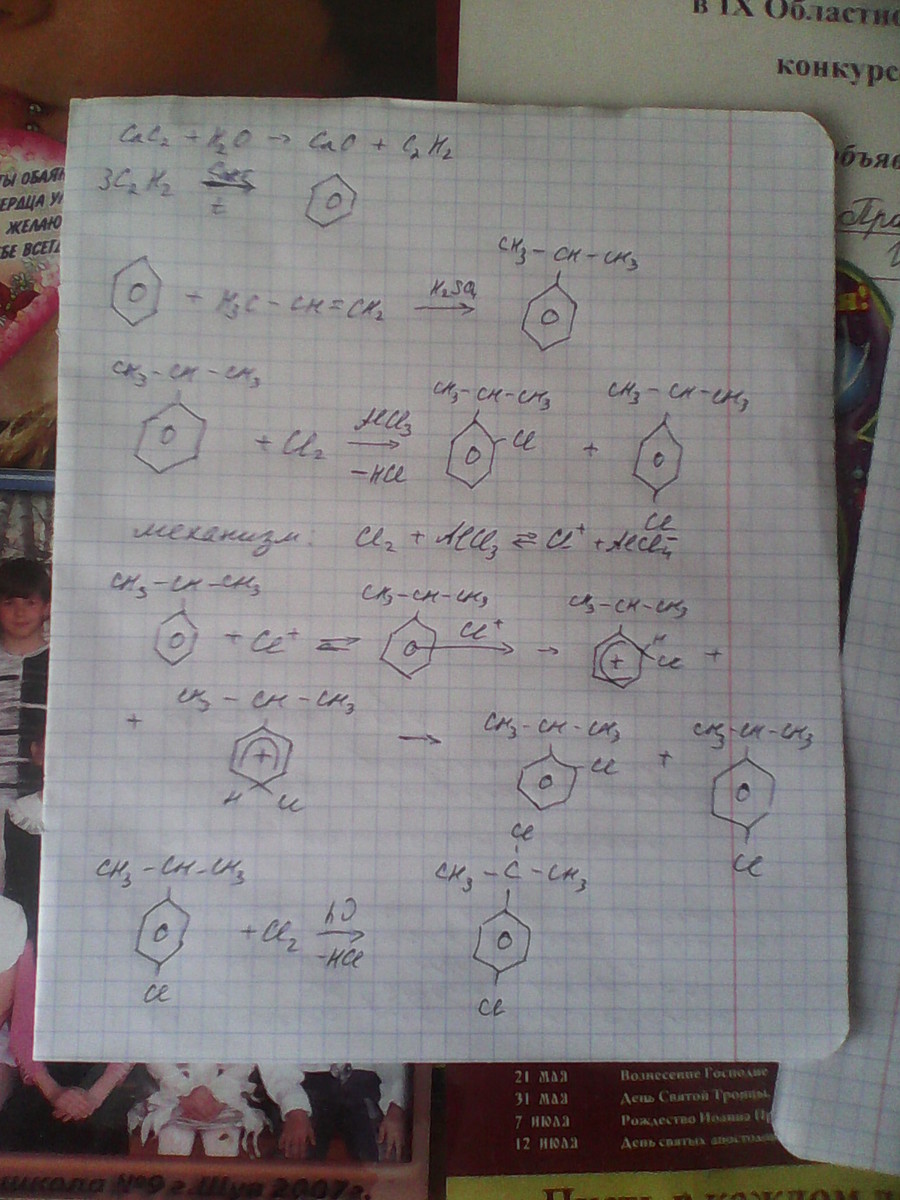 в IX Областно
конкурс
объяв
Пра
ТЫ ОБАЯ
СЕРДЦА У
ЖЕЛАЮ
БЕ ВСЕГД
CaC₂ + H₂O → CaO + C₂H₂
3C₂H₂ → t
+ H₃C – CH = CH₂ H₂SO₄ → CH₃ – CH – CH₃
CH₃ – CH – CH₃ + Cl₂ AlCl₃ → –HCl CH₃ – CH – CH₃ Cl + CH₃ – CH – CH₃ Cl
механизм: Cl₂ + AlCl₃ ⇄ Cl⁺ + AlCl₄⁻
CH₃ – CH – CH₃ + Cl⁺ ⇄ CH₃ – CH – CH₃ Cl⁺ → → CH₃ – CH – CH₃ + H Cl +
+ CH₃ – CH – CH₃ + H Cl → CH₃ – CH – CH₃ Cl + CH₃ – CH – CH₃ Cl
CH₃ – CH – CH₃ Cl + Cl₂ hυ → –HCl Cl CH₃ – C – CH₃ Cl
21 МАЯ Вознесение Господне
31 МАЯ День Святой Троицы.
7 ИЮЛЯ Рождество Иоанна Пр
12 ИЮЛЯ День святых апостоло
школа №9 г. Шуя 2007г.
Пусть в каждом д